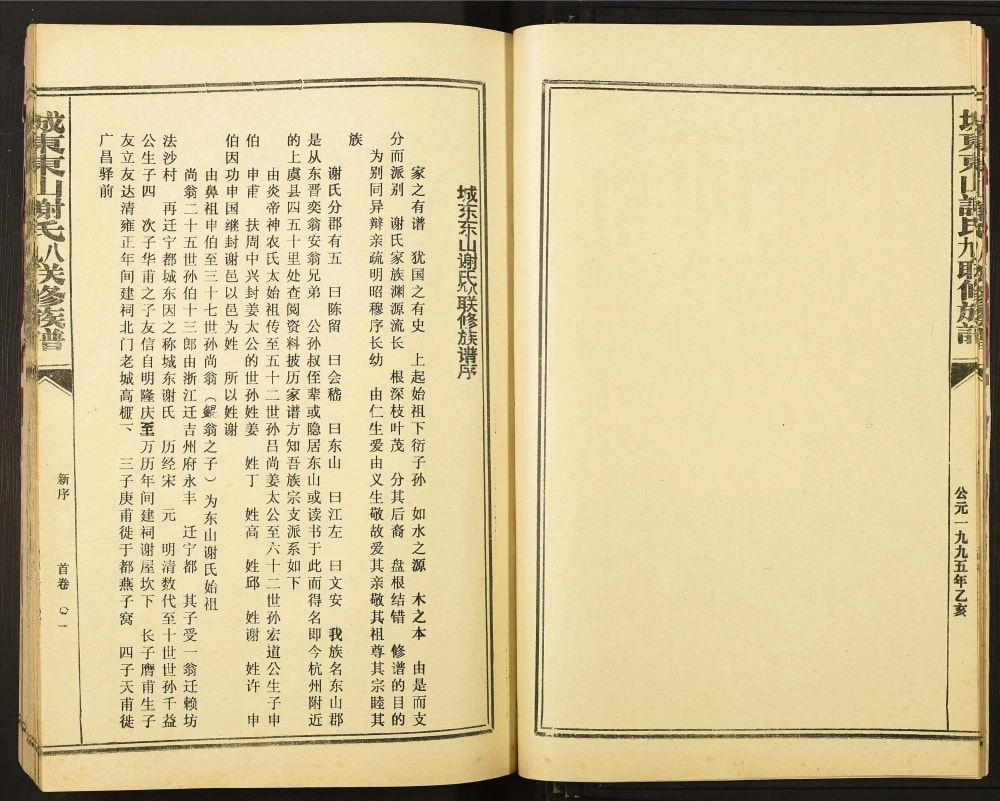 公元一九九五年乙亥
城东东山谢氏联修族谱序
家之有谱 犹国之有史 上起始祖下衍子孙 如水之源 木之本 由是而支
分而派别 谢氏家族渊源流长 根深枝叶茂 分其后裔 盘根结错 修谱的目的
为别同异辩亲疏明昭穆序长幼 由仁生爱由义生敬故爱其亲敬其祖尊其宗睦其
族
谢氏分郡有五 曰陈留 曰会稽 曰东山 曰江左 曰文安 我族名东山郡
是从东晋奕翁安翁兄弟 公孙叔侄辈或隐居东山或读书于此而得名即今杭州附近
的上虞县四五十里处查阅资料披历家谱方知吾族宗支派系如下
由炎帝神农氏太始祖传至五十二世孙吕尚姜太公至六十二世孙宏道公生子申
伯 申甫 扶周中兴封姜太公的世孙姓姜 姓丁 姓高 姓邱 姓谢 姓许 申
伯因功申国继封谢邑以邑为姓 所以姓谢
由鼻祖申伯至三十七世孙尚翁（鲲翁之子）为东山谢氏始祖
尚翁二十五世孙伯十三郎由浙江迁吉州府永丰 迁宁都 其子受一翁迁赖坊
法沙村 再迁宁都城东因之称城东谢氏 历经宋 元 明清数代至十世世孙千益
公生子四 次子华甫之子友信自明隆庆至万历年间建祠谢屋坎下 长子膺甫生子
友立友达清雍正年间建祠北门老城高棚下 三子庚甫徙于都燕子窝 四子天甫徙
广昌驿前
城東東山謝氏八联修族谱
新序
首卷 〇一